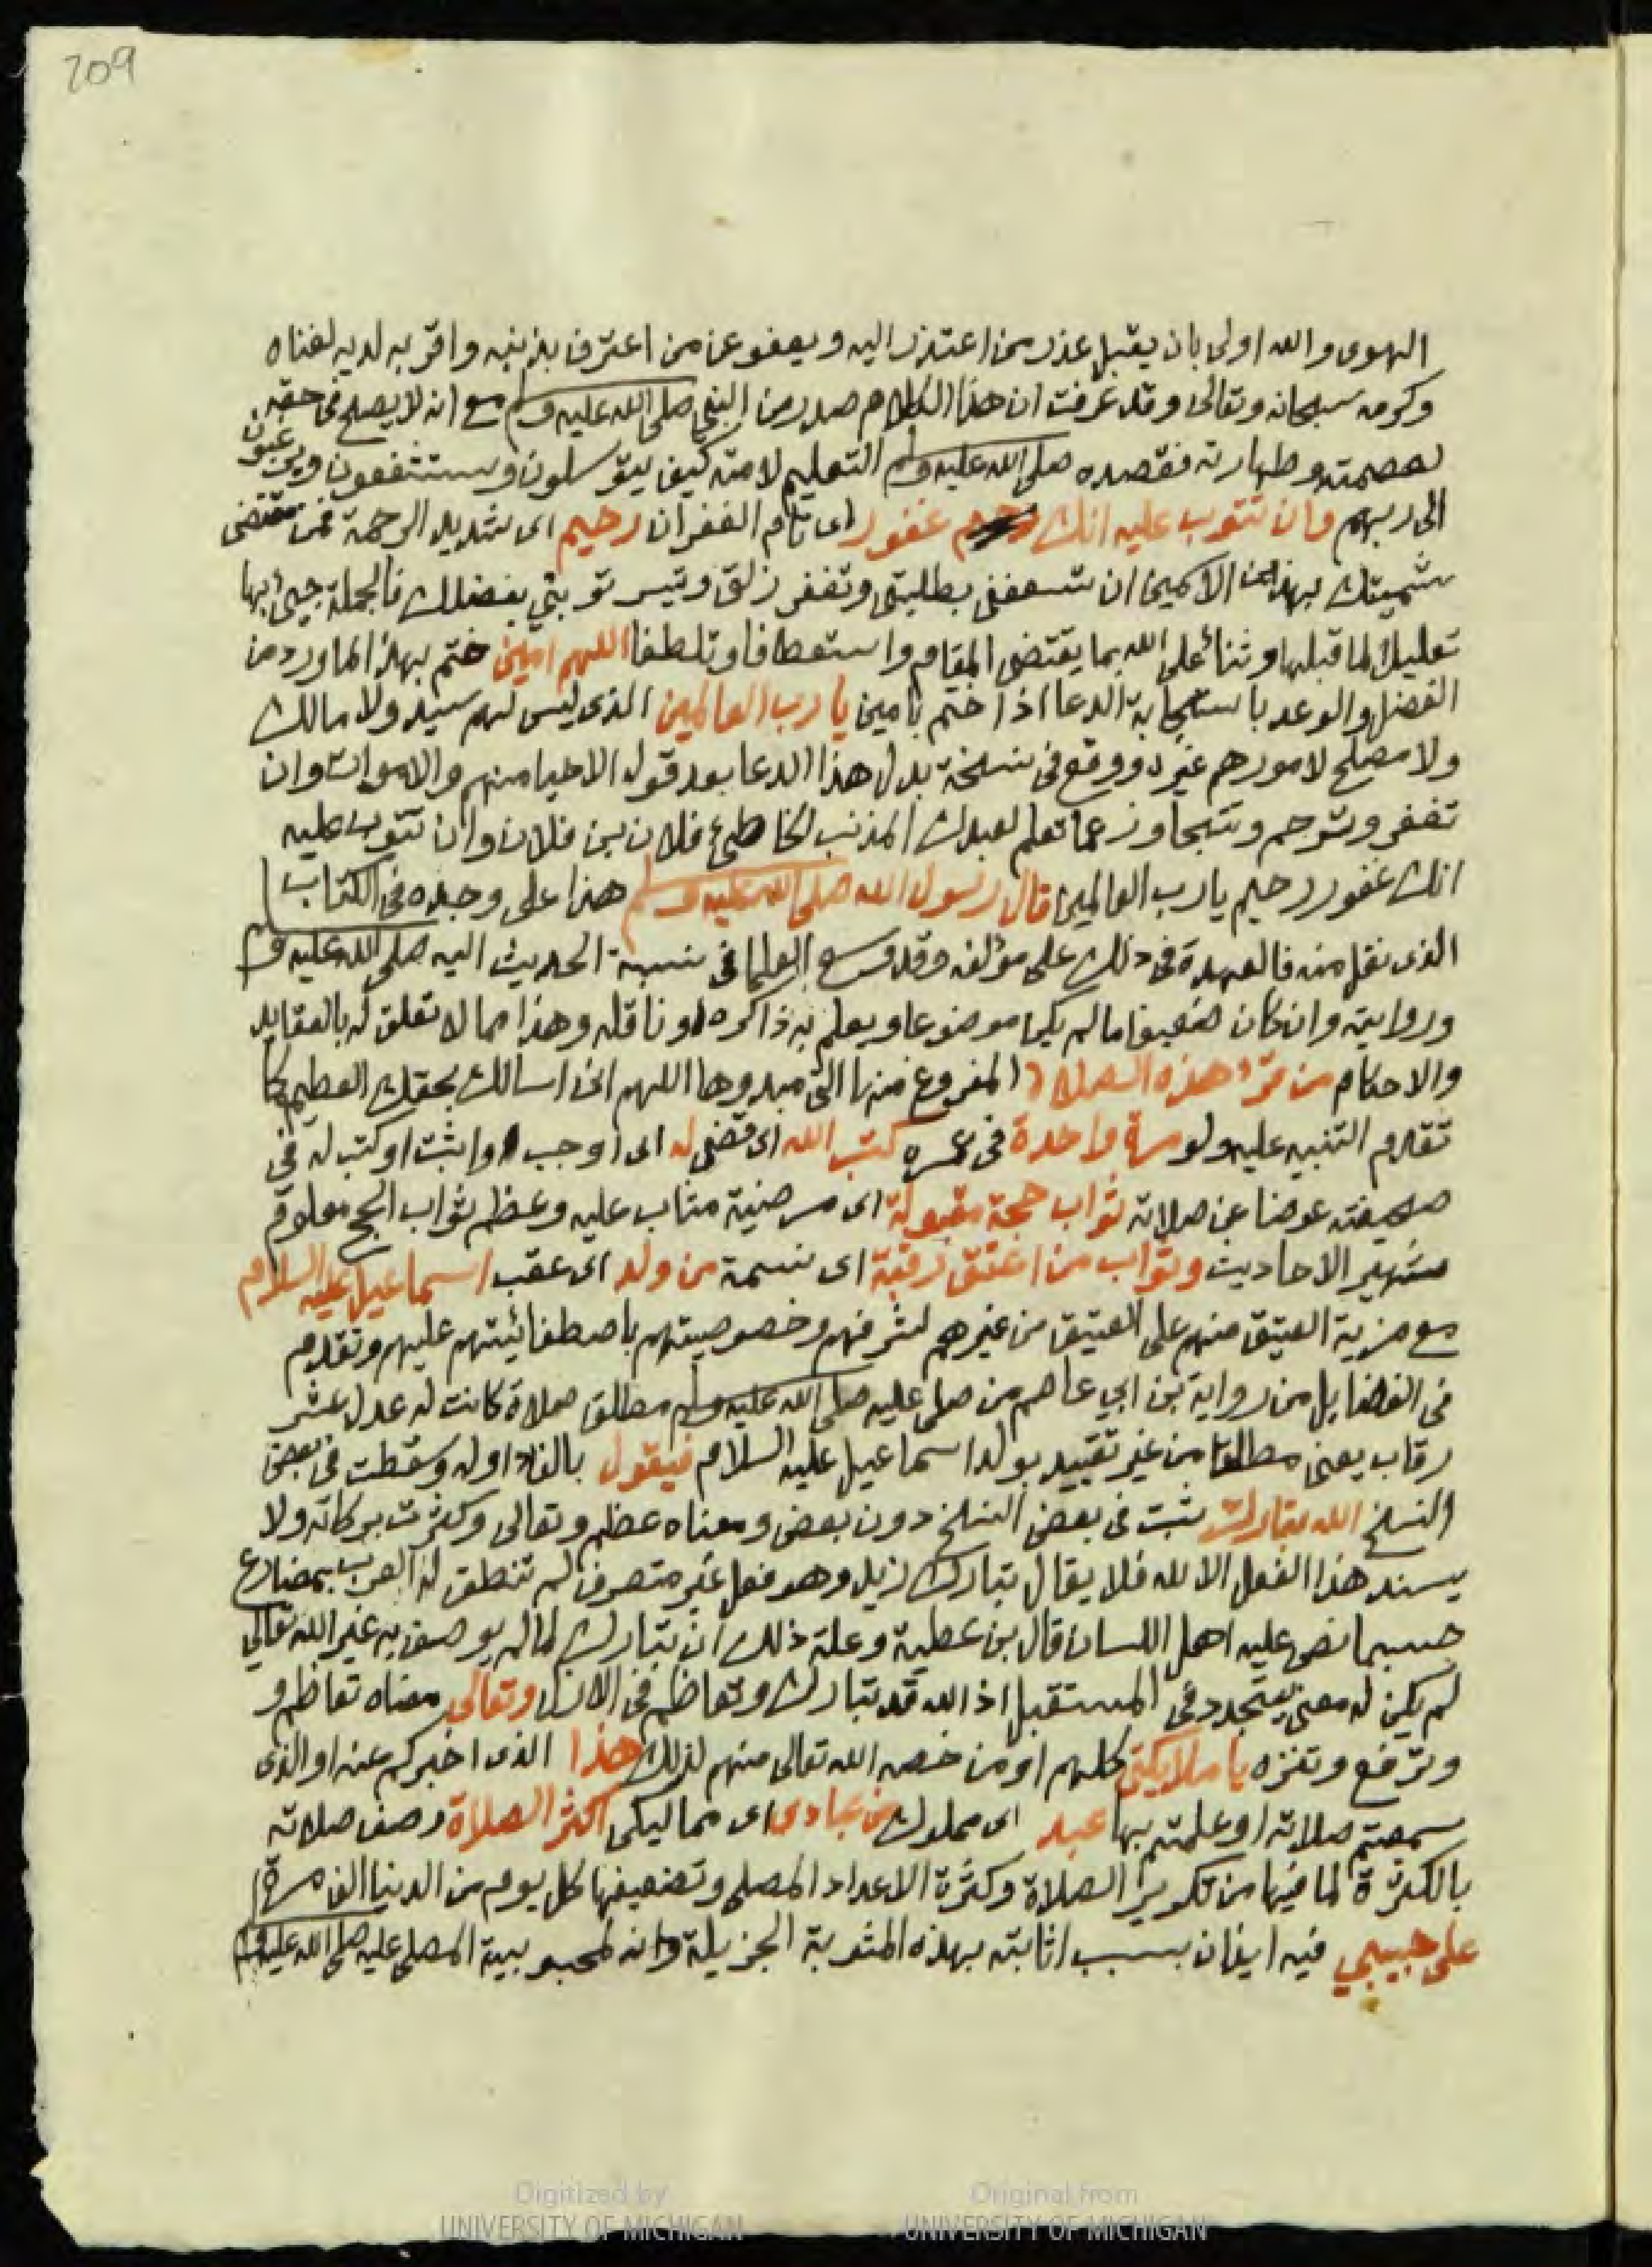 209
الهوى والله اولى بان يقبل عذر من اعتذر اليه ويعفو عن من اعترف بذنبه واقر به لديه لغناه
وكرمه سبحانه وتعالى وقد عرفت ان هذا الكلام صدر من النبي صلى الله عليه وسلم مع انه لا يصلح في حقه
لعصمته وطهارته فقصده صلى الله عليه وسلم التعليم لامته كيف يتوسلون ويستشفعون ويرغبون
الى ربهم وان تتوب عليه انك غفور اى تام الغفران رحيم اى شديد الرحمة فمن مقتضى
تسميتك بهذين الاسمين ان تسعفني بطلبتي وتغفر زلتي وتيسر توبتي بفضلك فالجملة جيئ بها
تعليلا لما قبلها وثنا على الله بما يقتضي المقام واستعطافا وتلطفا اللهم امين ختم بهذا لما ورد من
الفضل والوعد باستجابة الدعا اذا ختم بامين يا رب العالمين الذى ليس لهم سيد ولا مالك
ولا مصلح لامورهم غيره ووقع في نسخة بدل هذا الدعا بعد قوله الاحيا منهم والاموات وان
تغفر وترحم وتتجاوز عما تعلم لعبدك المذنب الخاطئ فلان بن فلان وان تتوب عليه
انك غفور رحيم يا رب العالمين قال رسول الله صلى الله عليه وسلم هذا على وجده في الكتاب
الذى نقل منه فالعهدة في ذلك على مؤلفه وقد وسع العلما في نسبة الحديث اليه صلى الله عليه وسلم
وروايته وان كان ضعيفا ما لم يكن موضوعا ويعلم به ذاكره او ناقله وهذا مما لا تعلق له بالعقايد
والاحكام من قرا هذه الصلاة المفروغ منها التي مبدوها اللهم انى اسالك بحقك العظيم كما
تقدم التنبيه عليه ولو مرة واحدة في عمره كتب الله اى قضى له اى اوجب او اثبت او كتب له في
صحيفته عوضا عن صلاته ثواب حجة مقبولة اى مرضية مثاب عليه وعظم ثواب الحج معلوم
شهير الاحاديث وثواب من اعتق رقبة اى نسمة من ولد اى عقب اسماعيل عليه السلام
مع مزية العتيق منهم على العتيق من غيرهم لشرفهم وخصوصيتهم باصطفائيتهم عليهم وتقدم
في الفضايل من رواية بن ابي عاصم من صلى عليه صلى الله عليه وسلم مطلق صلاة كانت له عدل عشر
رقاب يعنى مطلقا من غير تقييد بولد اسماعيل عليه السلام فيقول بالفا اوله وسقطت في بعض
النسخ الله تبارك ثبت في بعض النسخ دون بعض ومعناه عظم وتعالى وكثرت بركاته ولا
يسند هذا الفعل الا لله فلا يقال تبارك زيد وهو فعل غير متصرف لم تنطق له العرب بمضارع
حسبما نص عليه اهل اللسان قال بن عطية وعلة ذلك ان تبارك لما لم يوصف به غير الله تعالى
لم يكن له معنى يتجدد في المستقبل اذ الله قد تبارك وتعاظم في الازل وتعالى معناه تعاظم و
وترفع وتنزه يا ملايكتي كلهم او من خصه الله تعالى منهم لذلك هذا الذى اخبركم عنه او الذى
سمعتم صلاته او علمتم بها عبد اى مملوك من عبادى اى مماليكي اكثر الصلاة وصف صلاته
بالكثرة لما فيها من تكرير الصلاة وكثرة الاعداد المصلى وتضعيفها كل يوم من الدنيا الف مرة
على حبيبي فيه ايذان بسبب اثابته بهذه المثوبة الجزيلة وانه لمحبوبية المصلى عليه صلى الله عليه وسلم
Digitized by
UNIVERSITY OF MICHIGAN
Original from
UNIVERSITY OF MICHIGAN